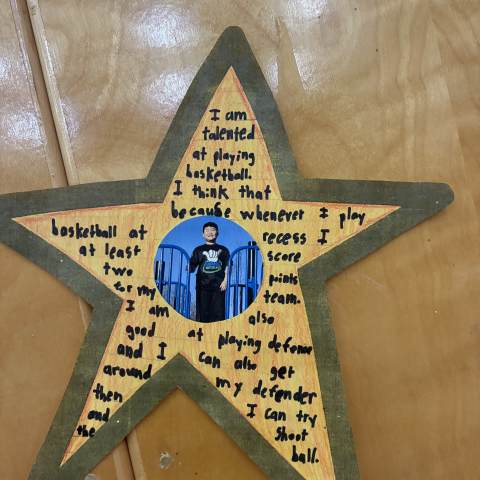 I am
talented
at playing
basketball.
I think that
because whenever I play
basketball at recess I
at least score
two points
for my team.
I am also
good at playing defense
and I can also get
around my defender
then I can try
and shoot
the ball.